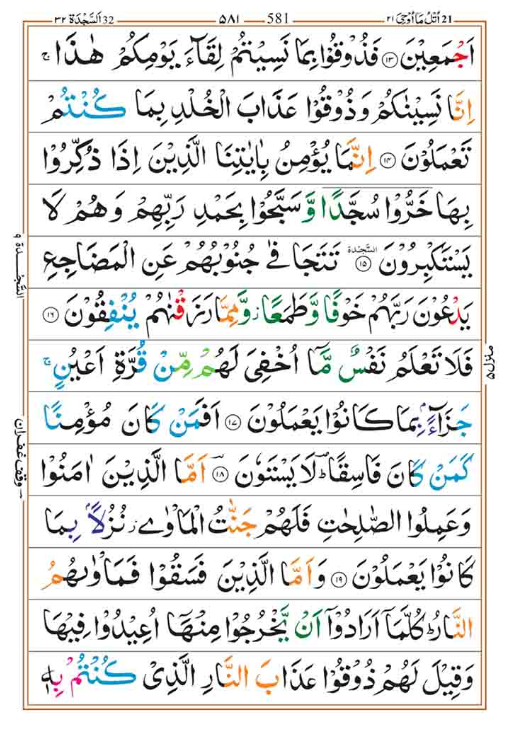 اُتْلُ مَآ اُوْحِیَ ٢١ 21 581 ٥٨١ 32 اَلسَّجْدَة ٣٢
اَجْمَعِيْنَ ۝١٣ فَذُوْقُوْا بِمَا نَسِيْتُمْ لِقَآءَ يَوْمِكُمْ هٰذَا ۚ
اِنَّا نَسِيْنٰكُمْ وَذُوْقُوْا عَذَابَ الْخُلْدِ بِمَا كُنْتُمْ
تَعْمَلُوْنَ ۝١٤ اِنَّمَا يُؤْمِنُ بِاٰيٰتِنَا الَّذِيْنَ اِذَا ذُكِّرُوْا
بِهَا خَرُّوْا سُجَّدًا وَّسَبَّحُوْا بِحَمْدِ رَبِّهِمْ وَهُمْ لَا
يَسْتَكْبِرُوْنَ ۝١٥ السجدة تَتَجَافٰى جُنُوْبُهُمْ عَنِ الْمَضَاجِعِ
السَّجْدَة ٩
يَدْعُوْنَ رَبَّهُمْ خَوْفًا وَّطَمَعًا ۫ وَّمِمَّا رَزَقْنٰهُمْ يُنْفِقُوْنَ ۝١٦
فَلَا تَعْلَمُ نَفْسٌ مَّآ اُخْفِيَ لَهُمْ مِّنْ قُرَّةِ اَعْيُنٍ ۚ
منزل ٥
جَزَآءًۢ بِمَا كَانُوْا يَعْمَلُوْنَ ۝١٧ اَفَمَنْ كَانَ مُؤْمِنًا
كَمَنْ كَانَ فَاسِقًا ؕ لَا يَسْتَوٗنَ ۝١٨ اَمَّا الَّذِيْنَ اٰمَنُوْا
وقف غفران
وَعَمِلُوا الصّٰلِحٰتِ فَلَهُمْ جَنّٰتُ الْمَاْوٰى ۫ نُزُلًاۢ بِمَا
كَانُوْا يَعْمَلُوْنَ ۝١٩ وَاَمَّا الَّذِيْنَ فَسَقُوْا فَمَاْوٰىهُمُ
النَّارُ ؕ كُلَّمَآ اَرَادُوْۤا اَنْ يَّخْرُجُوْا مِنْهَآ اُعِيْدُوْا فِيْهَا
وَقِيْلَ لَهُمْ ذُوْقُوْا عَذَابَ النَّارِ الَّذِيْ كُنْتُمْ بِهٖ